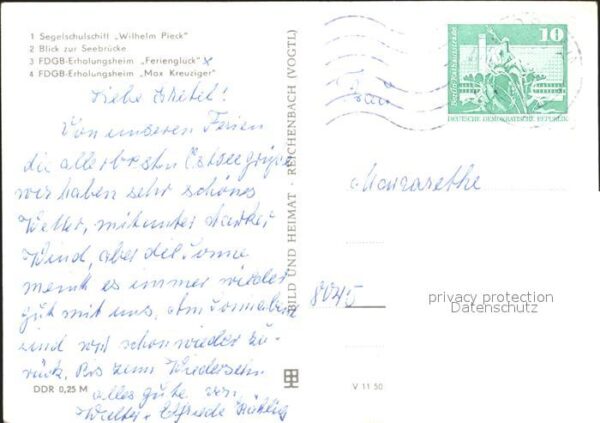 1 Segelschulschiff „Wilhelm Pieck“
2 Blick zur Seebrücke
3 FDGB-Erholungsheim „Ferienglück“ x
4 FDGB-Erholungsheim „Max Kreuziger“
Liebe
Von unseren Ferien
die allerbesten Ostseegrüße
wir haben sehr schönes
Wetter, mitunter starker
Wind, aber die Sonne
meint es immer wieder
gut mit uns. Am Sonnabend
sind wir schon wieder zu-
rück. Bis zum Wiedersehn
alles gute von
Walter + Elfriede
DDR 0,25 M
BILD UND HEIMAT · REICHENBACH (VOGTL)
V 11 50
10
Berlin-Rathausstraße
DEUTSCHE DEMOKRATISCHE REPUBLIK
Frau
Margarethe
8045
privacy protection
Datenschutz